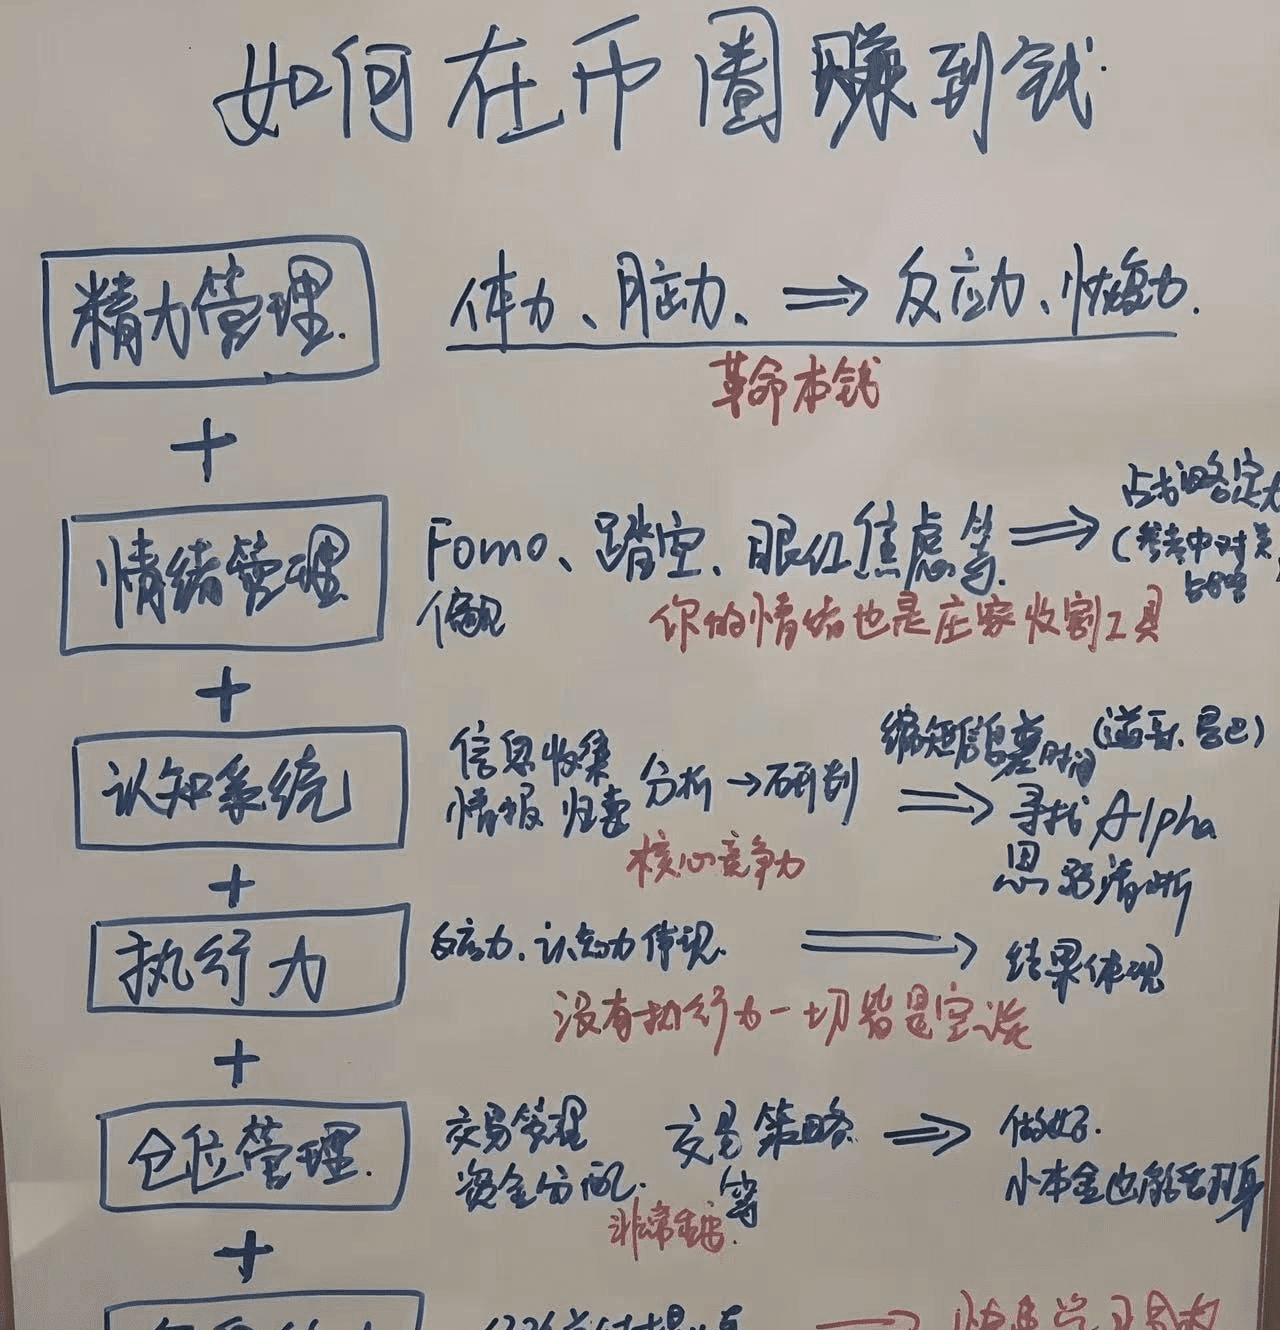 如何在币圈赚到钱
精力管理.
体力、脑力、⇒ 反应力、恢复力.
革命本钱
+
情绪管理
Fomo、踏空、眼红焦虑等.⇒
偏见
占战略定
(参考中对美
你的情绪也是庄家收割工具
+
认知系统
信息收集
情报归类
分析→研判
⇒
缩短信息差时间
寻找Alpha
思路清晰
核心竞争力
+
执行力
反应力.认知力体现.
⇒ 结果体现
没有执行力一切皆是空谈
+
仓位管理.
交易管理
资金分配.
交易策略
等
⇒ 做好.
小本金也能翻身
非常重要.
+